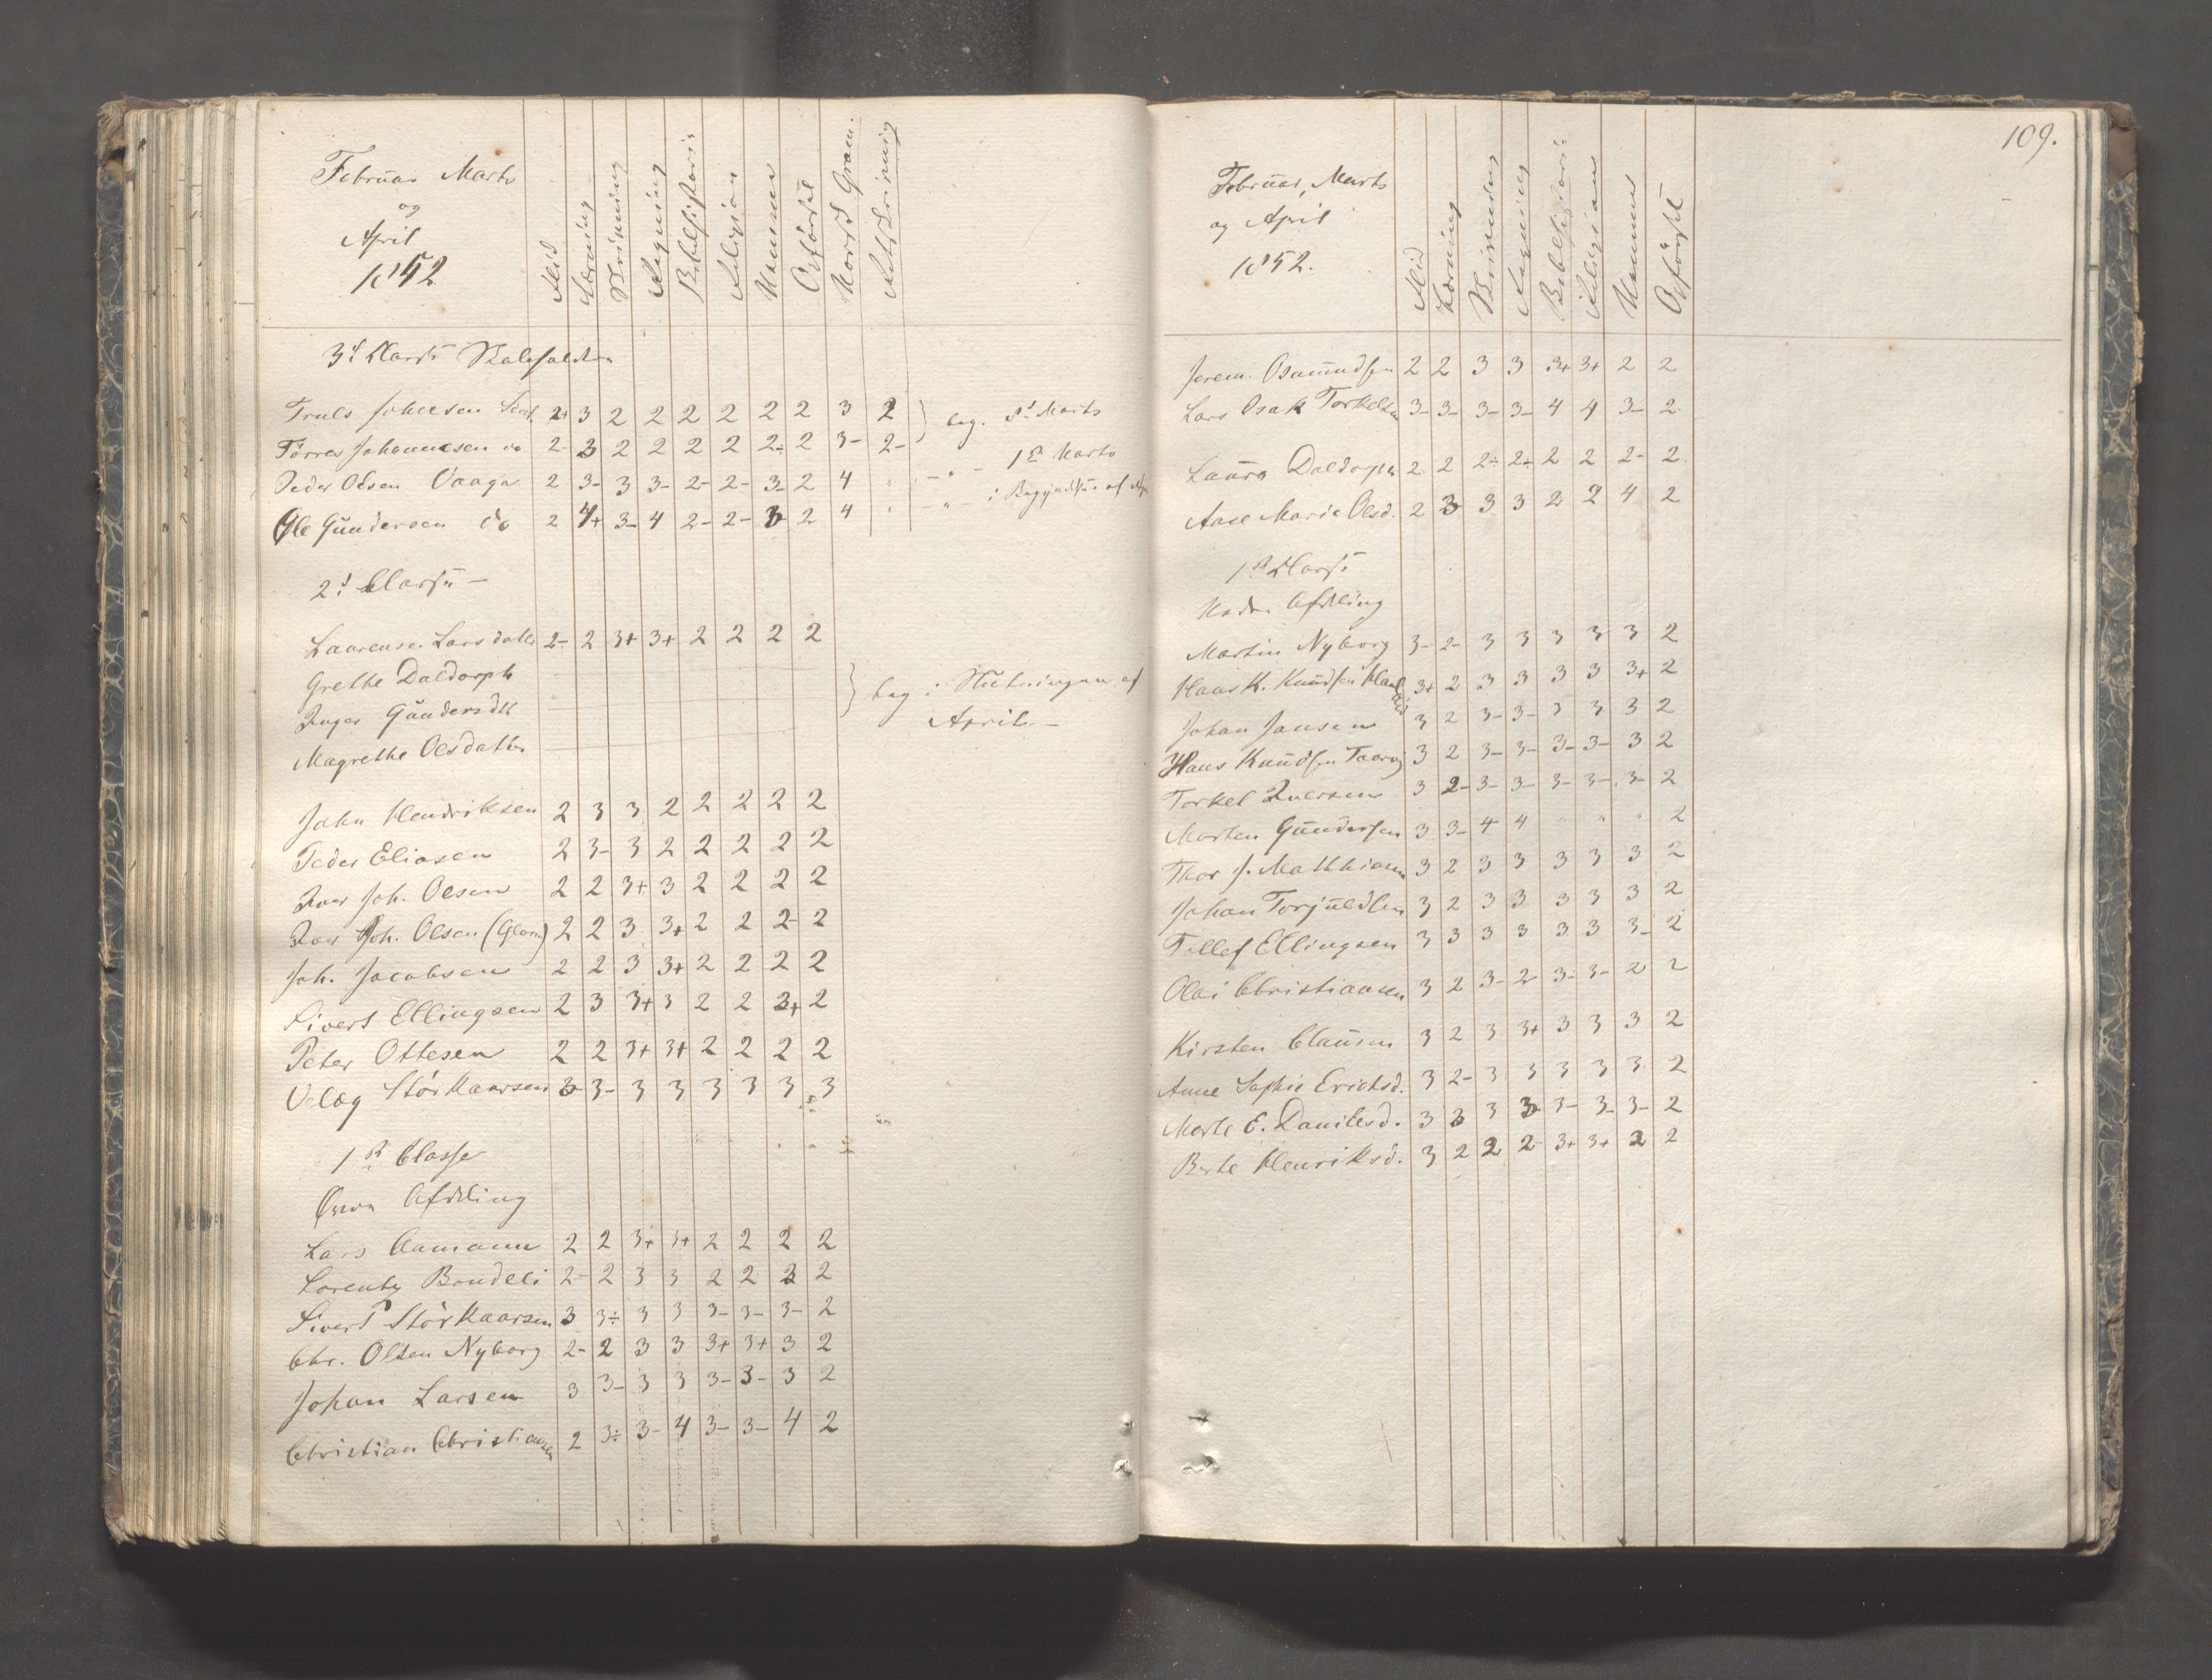 Februar Marts
og
April
1852
Flid
Læsning
Skrivning
Regning
Bibelhistorie
Religion
Hukommelse
Opførsel
Norsk Gram.
Retskrivning
3d Classe
Truls Johnsen 2+ 3 2 2 2 2 2 2 3 2 } beg. Marts
Törres Johannesen do 2- 3 2 2 2 2 2÷ 2 3- 2-
Peder Olsen Vaage 2 3- 3 3- 2- 2- 3- 2 4 " - " - 1ste Marts
Ole Gundersen do 2 4+ 3- 4 2- 2- 3 2 4 " - " - i Begyndelsen af
2d Classe -
Laurense Larsdatter 2- 2 3+ 3+ 2 2 2 2
Grethe Daldorph
Inger Gundersdtt } beg i Slutningen af
Magrethe Olsdatter April -
John Hendriksen 2 3 3 2 2 2 2 2
Peder Eliasen 2 3- 3 2 2 2 2 2
Iver Joh. Olsen 2 2 3+ 3 2 2 2 2
Iver Joh. Olsen (Glarm) 2 2 3 3+ 2 2 2- 2
Joh. Jacobsen 2 2 3 3+ 2 2 2 2
Sivert Ellingsen 2 3 3+ 3 2 2 3+ 2
Peter Ottesen 2 2 3+ 3+ 2 2 2 2
Velæg Störkaarsen 3 3- 3 3 3 3 3 3
1ste Classe
Øvre Afdeling
Lars Aamann 2 2 3+ 3+ 2 2 2 2
Lorentz Bondeli 2- 2 3 3 2 2 2 2
Sivert Störkaarsen 3 3÷ 3 3 3- 3- 3- 2
Chr. Olsen Nyborg 2- 2 3 3 3+ 3+ 3 2
Johan Larsen 3 3- 3 3 3- 3- 3 2
Christian Christiansen 2 3÷ 3- 4 3- 3- 4 2
109.
Februar, Marts
og April
1852.
Flid
Læsning
Skrivning
Regning
Bibelhistorie
Religion
Opførsel
Jerem. Osmundsen 2 2 3 3 3+ 3+ 2 2
Lars Osak Torkelsen 3- 3- 3- 3- 4 4 3- 2
Laura Daldorph 2 2 2÷ 2÷ 2 2 2- 2
Aase Marie Olsd. 2 3 3 3 2 2 4 2
1ste Classe
Nedre Afdeling
Martin Nyborg 3- 2- 3 3 3 3 3 2
Hans K. Knudsen 3+ 2 3 3 3 3 3+ 2
Johan Jansen 3 2 3- 3- 3 3 3 2
Hans Knudsen 3 2 3- 3- 3- 3- 3 2
Torkel Iversen 3 2- 3- 3- 3- 3- 3- 2
Morten Gundersen 3 3- 4 4 " " " 2
Thor J. Matthiasen 3 2 3 3 3 3 3 2
Johan Torjuldsen 3 2 3 3 3 3 3 2
Tellef Ellingsen 3 3 3 3 3 3 3- 2
Olai Christiansen 3 2 3- 2 3- 3- 2 2
Kirsten Clausen 3 2 3 3+ 3 3 3 2
Anne Sophie Erichsd. 3 2- 3 3 3 3 3 2
Marte E. Danilsd. 3 3 3 3 3- 3- 3- 2
Berte Henriksd. 3 2 2 2- 3+ 3+ 2 2